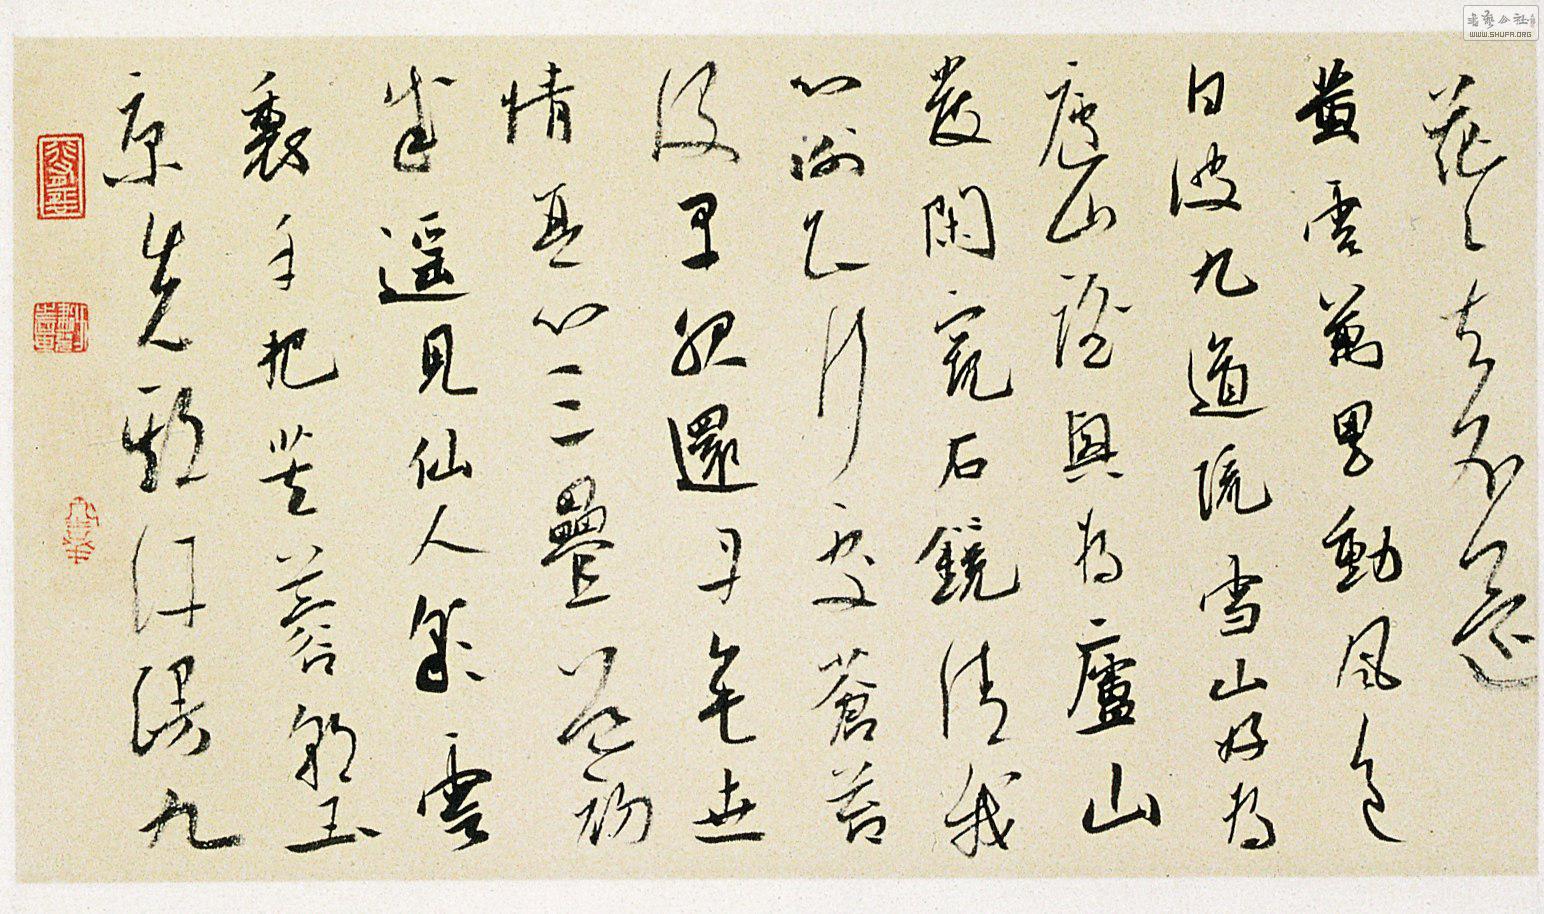 茫々去不還
黃雲萬里動風色
白波九道流雪山好為
廬山謠興為廬山
發閑窺石鏡清我
心謝公行處蒼苔
沒早服還丹無世
情琴心三疊道初
成遙見仙人彩雲
裏手把芙蓉朝玉
京先期汗漫九
書藝公社
WWW.SHUFA.ORG